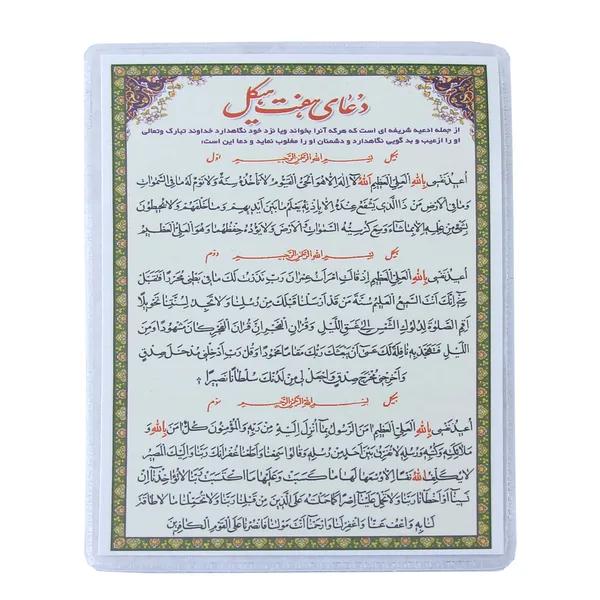 دعای هفت هیکل
از جمله ادعیه شریفه ای است که هرکه آنرا بخواند ویا نزد خود نگاهدارد خداوند تبارک وتعالی
او را ازعیب و بد گویی نگاهدارد و دشمنان او را مغلوب نماید و دعا این است:
هیکل بسم الله الرحمن الرحیم اول
اعیذ نفسی بالله العلی العظیم الله لا اله الا هو الحی القیوم لا تاخذه سنة ولا نوم له ما فی السموات
وما فی الارض من ذا الذی یشفع عنده الا باذنه یعلم ما بین ایدیهم وما خلفهم ولا یحیطون
بشیء من علمه الا بما شاء وسع کرسیه السموات والارض ولا یؤده حفظهما وهو العلی العظیم
هیکل بسم الله الرحمن الرحیم دوم
اعیذ نفسی بالله العلی العظیم اذ قالت امرات عمران رب انی نذرت لک ما فی بطنی محررا فتقبل
منی انک انت السمیع العلیم سنة من قد ارسلنا قبلک من رسلنا ولا تجد لسنتنا تحویلا
اقم الصلوة لدلوک الشمس الی غسق اللیل وقران الفجر ان قران الفجر کان مشهودا ومن
اللیل فتهجد به نافلة لک عسی ان یبعثک ربک مقاما محمودا وقل رب ادخلنی مدخل صدق
واخرجنی مخرج صدق واجعل لی من لدنک سلطانا نصیرا
هیکل بسم الله الرحمن الرحیم سوم
اعیذ نفسی بالله العلی العظیم امن الرسول بما انزل الیه من ربه والمؤمنون کل امن بالله و
ملائکته وکتبه ورسله لا نفرق بین احد من رسله وقالوا سمعنا واطعنا غفرانک ربنا والیک المصیر
لا یکلف الله نفسا الا وسعها لها ما کسبت وعلیها ما اکتسبت ربنا لا تؤاخذنا ان
نسینا او اخطانا ربنا ولا تحمل علینا اصرا کما حملته علی الذین من قبلنا ربنا ولا تحملنا ما لا طاقة
لنا به واعف عنا واغفر لنا وارحمنا انت مولینا فانصرنا علی القوم الکافرین